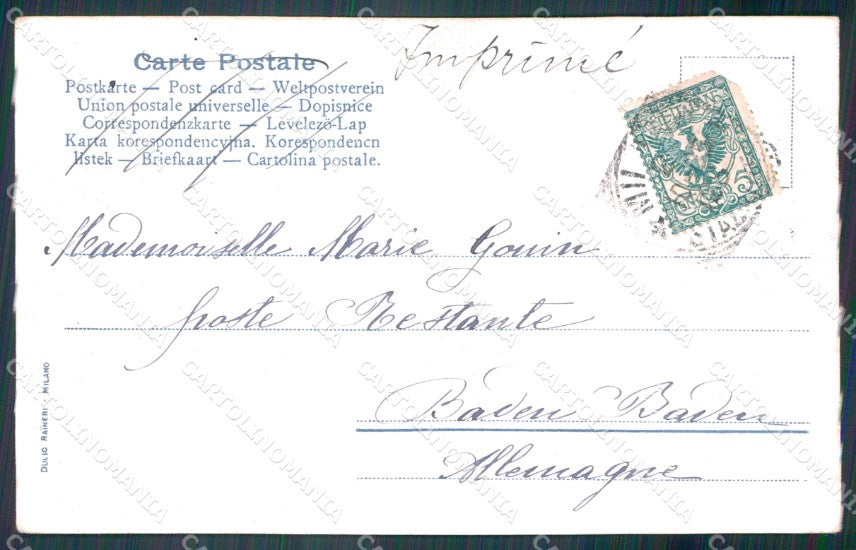 Imprimé
Carte Postale
Postkarte — Post card — Weltpostverein
Union postale universelle — Dopisnice
Correspondenzkarte — Levelezö-Lap
Karta korespondencyjna. Korespondencn
listek — Briefkaart — Cartolina postale.
5
Mademoiselle Marie Gouin
poste Restante
Baden Baden
Allemagne
DULIO RAINERI - MILANO
CARTOLINOMANIA